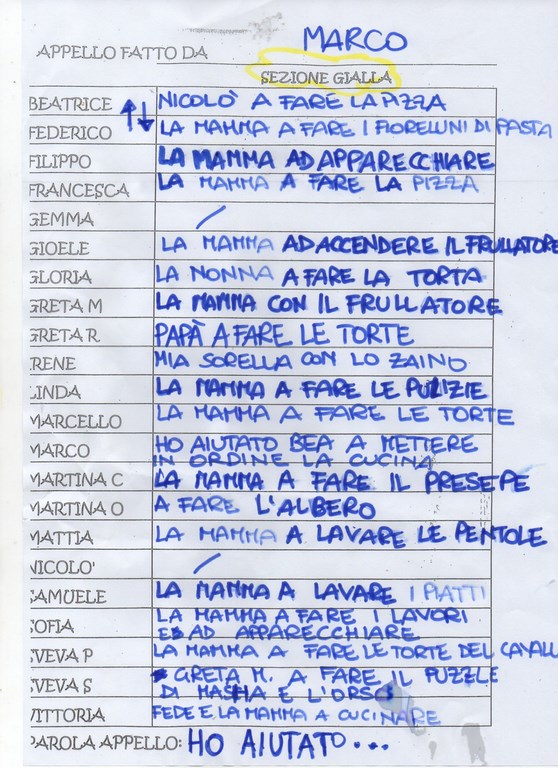 APPELLO FATTO DA MARCO
SEZIONE GIALLA
BEATRICE NICOLÒ A FARE LA PIZZA
FEDERICO LA MAMMA A FARE I FIORELLINI DI PASTA
FILIPPO LA MAMMA AD APPARECCHIARE
FRANCESCA LA MAMMA A FARE LA PIZZA
GEMMA /
GIOELE LA MAMMA AD ACCENDERE IL FRULLATORE
GLORIA LA NONNA A FARE LA TORTA
GRETA M LA MAMMA CON IL FRULLATORE
GRETA R PAPÀ A FARE LE TORTE
IRENE MIA SORELLA CON LO ZAINO
LINDA LA MAMMA A FARE LE PULIZIE
MARCELLO LA MAMMA A FARE LE TORTE
MARCO HO AIUTATO BEA A METTERE
IN ORDINE LA CUCINA
MARTINA C LA MAMMA A FARE IL PRESEPE
MARTINA O A FARE L'ALBERO
MATTIA LA MAMMA A LAVARE LE PENTOLE
NICOLO' /
SAMUELE LA MAMMA A LAVARE I PIATTI
SOFIA LA MAMMA A FARE I LAVORI
E AD APPARECCHIARE
SVEVA P LA MAMMA A FARE LE TORTE DEL CAVALL
SVEVA S GRETA M. A FARE IL PUZZLE
DI MASHA E L'ORSO
VITTORIA FEDE E LA MAMMA A CUCINARE
PAROLA APPELLO: HO AIUTATO...